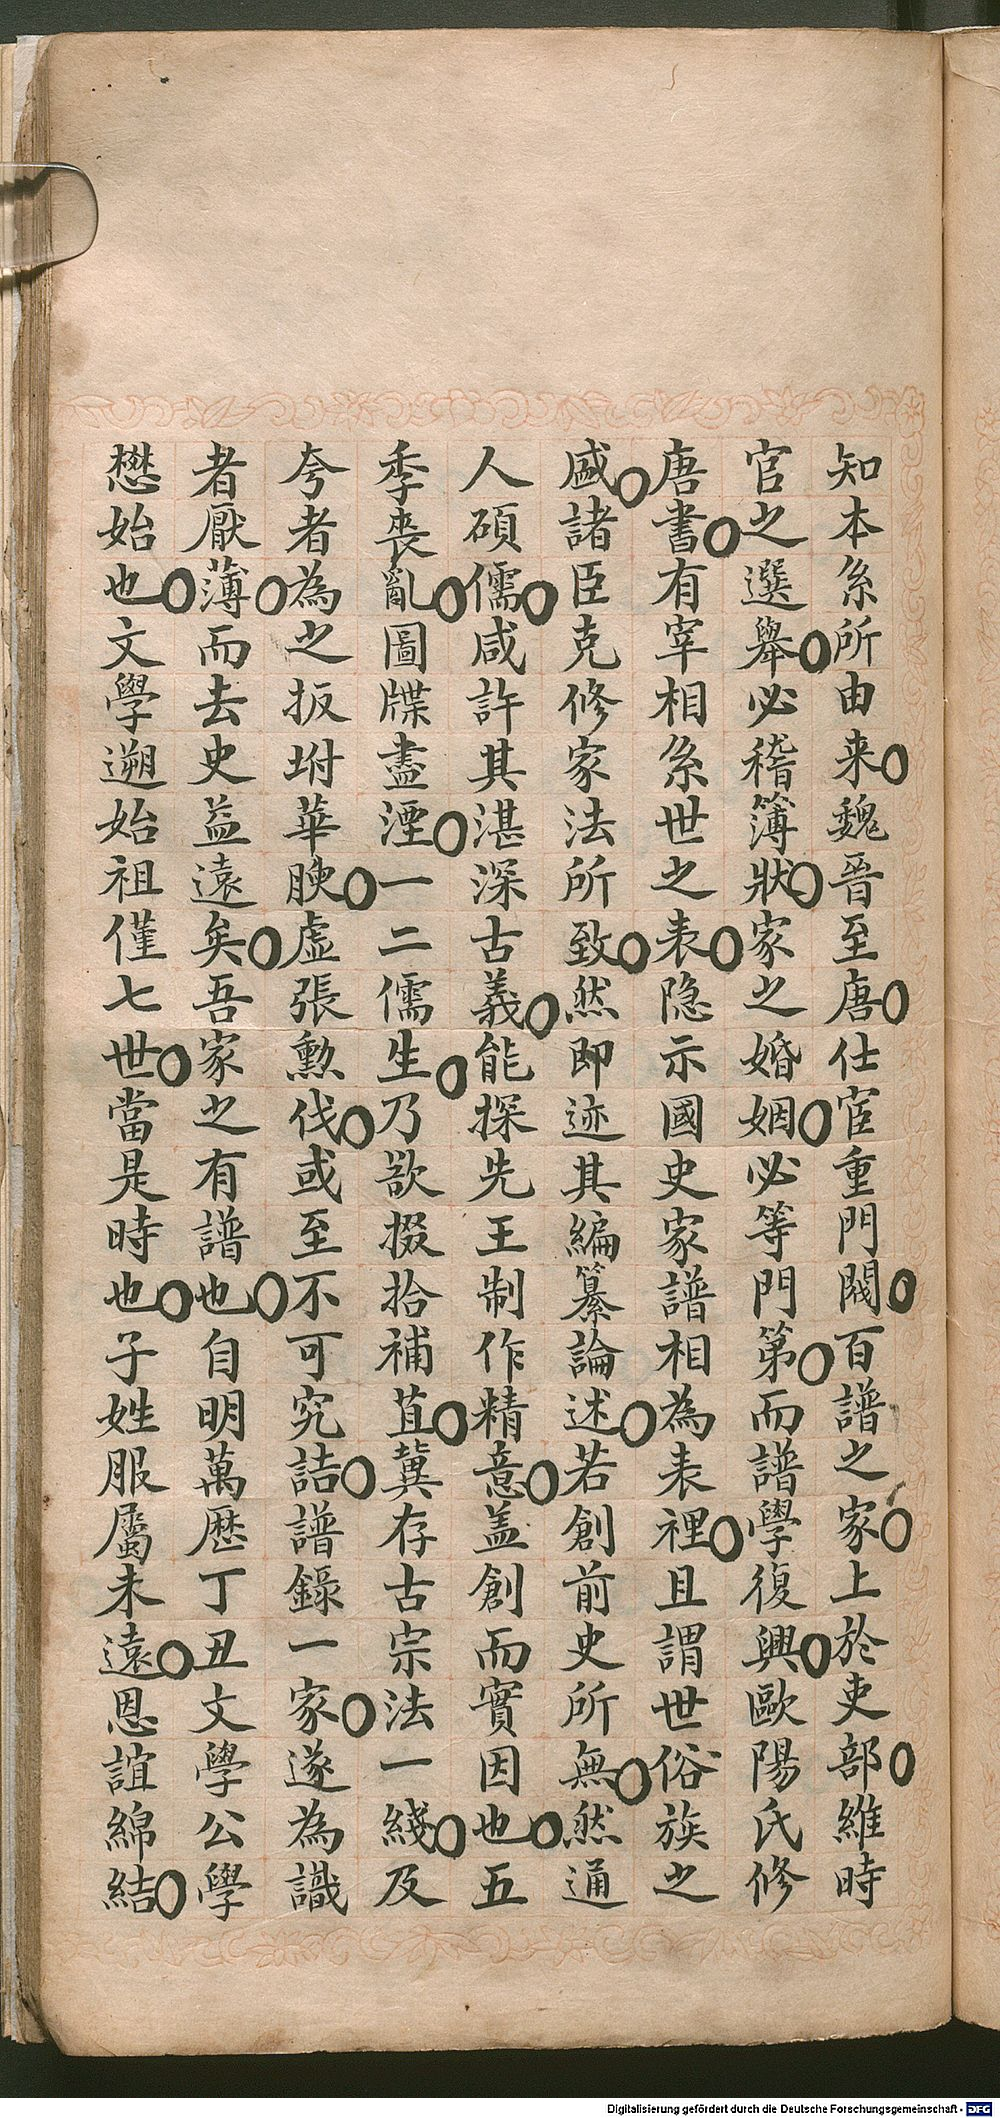 知本系所由来魏晉至唐仕宦重門閥百譜之家上於吏部維時
官之選舉必稽簿狀家之婚姻必等門第而譜學復興歐陽氏修
唐書有宰相系世之表隐示國史家譜相為表裡且謂世俗族之
盛諸臣克修家法所致然即迹其編纂論述若創前史所無然通
人碩儒咸許其湛深古義能探先王制作精意盖創而實因也五
季喪亂圖牒盡湮一二儒生乃欲掇拾補苴冀存古宗法一綫及
夸者為之扳坿華腴虛張勳伐或至不可究詰譜錄一家遂為識
者厭薄而去史益遠矣吾家之有譜也自明萬歷丁丑文學公學
懋始也文學遡始祖僅七世當是時也子姓服屬未遠恩誼綿結
Digitalisierung gefördert durch die Deutsche Forschungsgemeinschaft - DFG